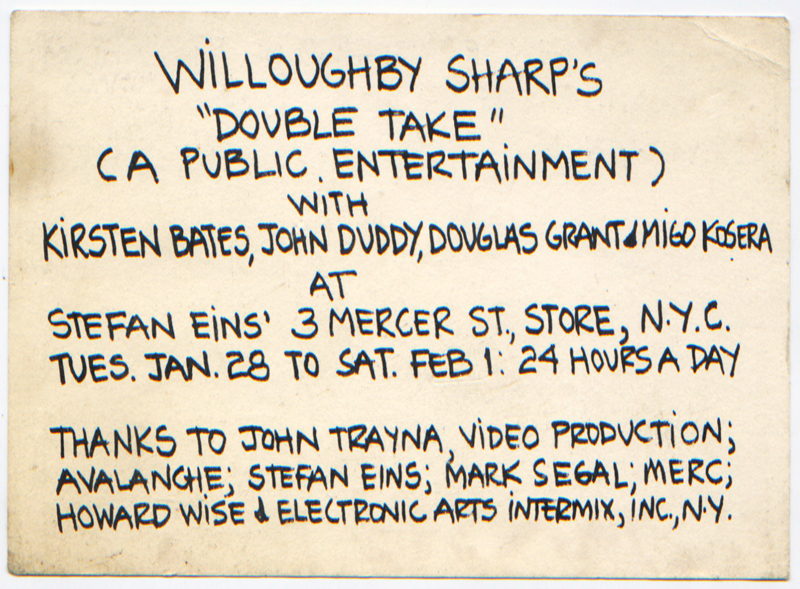 WiLLOUGHBY SHARP'S
"DOUBLE TAKE"
(A PUBLIC ENTERTAiNMENT)
WITH
KiRSTEN BATES, JOHN DUDDY, DOUGLAS GRANT & MIGO KOSERA
AT
STEFAN EiNS' 3 MERCER ST., STORE, N.Y.C.
TUES. JAN. 28 TO SAT. FEB 1: 24 HOURS A DAY
THANKS TO JOHN TRAYNA, ViDEO PRODUCTiON;
AVALANCHE; STEFAN EiNS; MARK SEGAL; MERC;
HOWARD WiSE & ELECTRONiC ARTS iNTERMiX, INC., N.Y.